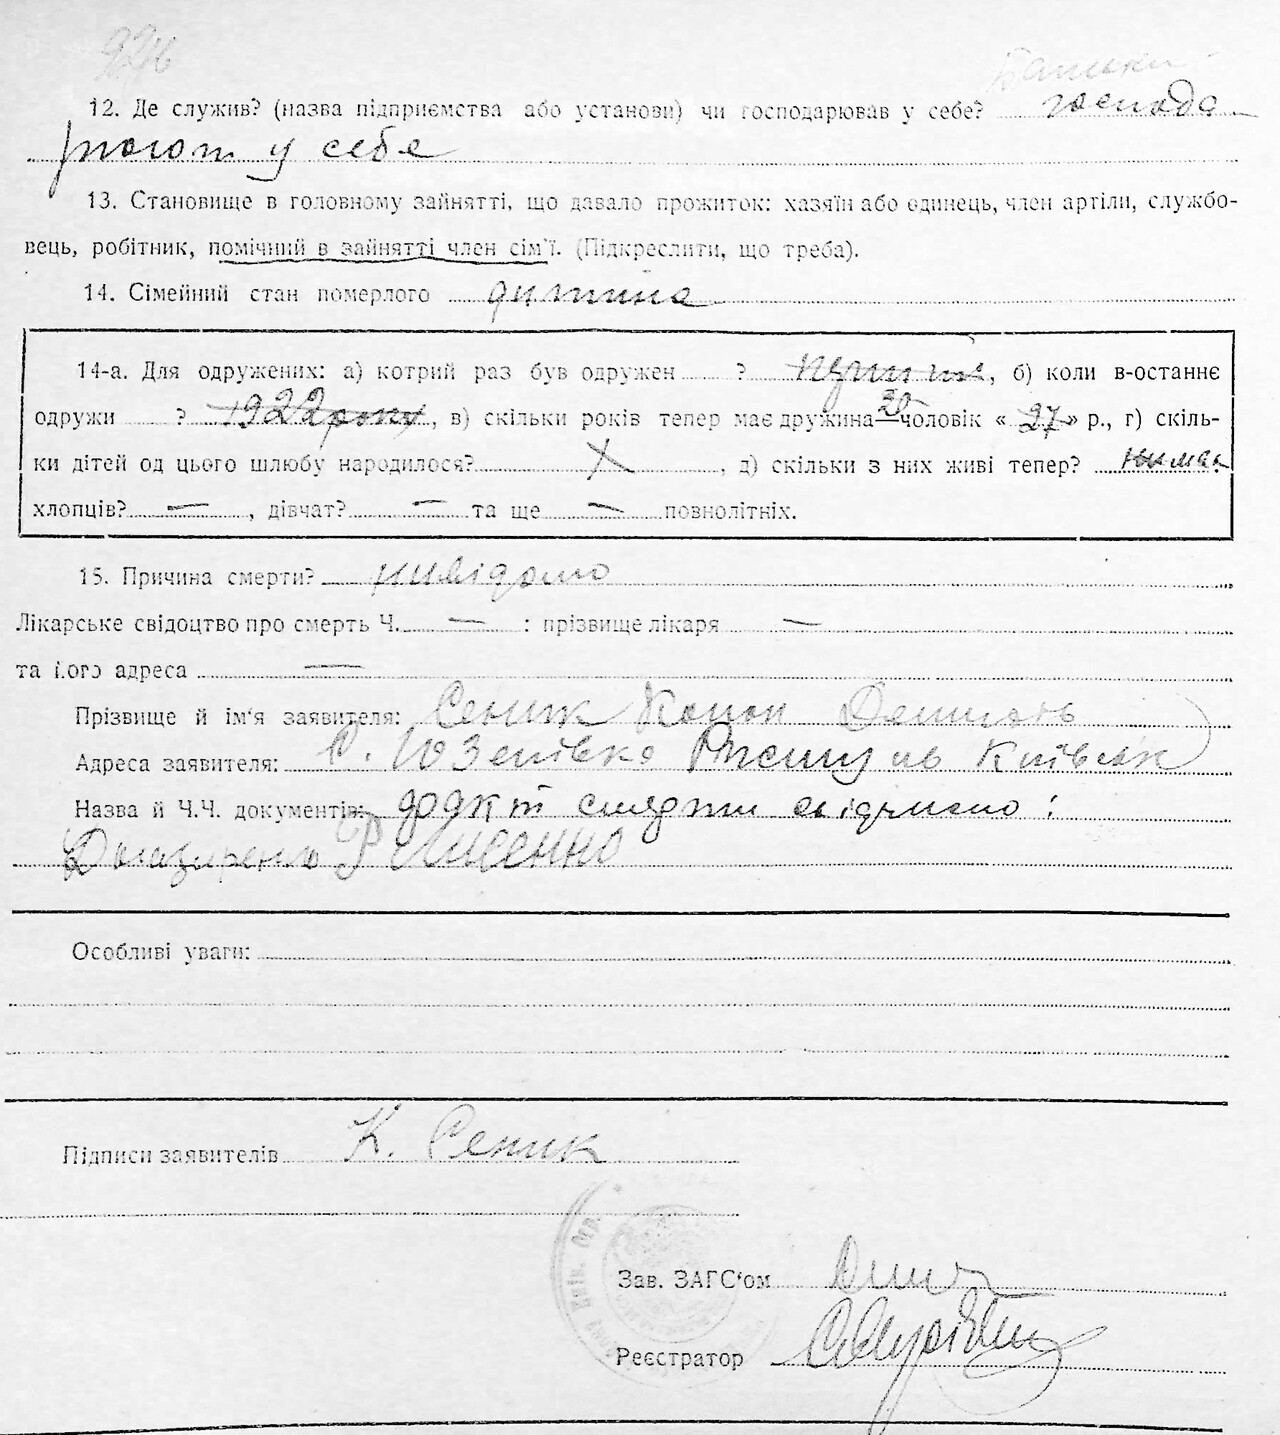 Батьки
12. Де служив? (назва підприємства або установи) чи господарював у себе? господа
рюют у себе
13. Становище в головному зайнятті, що давало прожиток: хазяїн або одинець, член артіли, службо-
вець, робітник, помічний в зайнятті член сім'ї. (Підкреслити, що треба).
14. Сімейний стан померлого дитина
14-а. Для одружених: а) котрий раз був одружен ? , б) коли в-останнє
одружи ? 1922 року, в) скільки років тепер має дружина—чоловік « 27 » р., г) скіль- 30
ки дітей од цього шлюбу народилося? X , д) скільки з них живі тепер? нимає
хлопців? — , дівчат? — та ще — повнолітніх.
15. Причина смерти? нивідомо
Лікарське свідоцтво про смерть Ч. — : прізвище лікаря —
та його адреса —
Прізвище й ім'я заявителя: Сеник
Адреса заявителя: с. Юзепівка
Назва й Ч.Ч. документів:
Лисенко
Особливі уваги:
Підписи заявителів К. Сеник
Київ. Окр.
Зав. ЗАГС'ом
Реєстратор